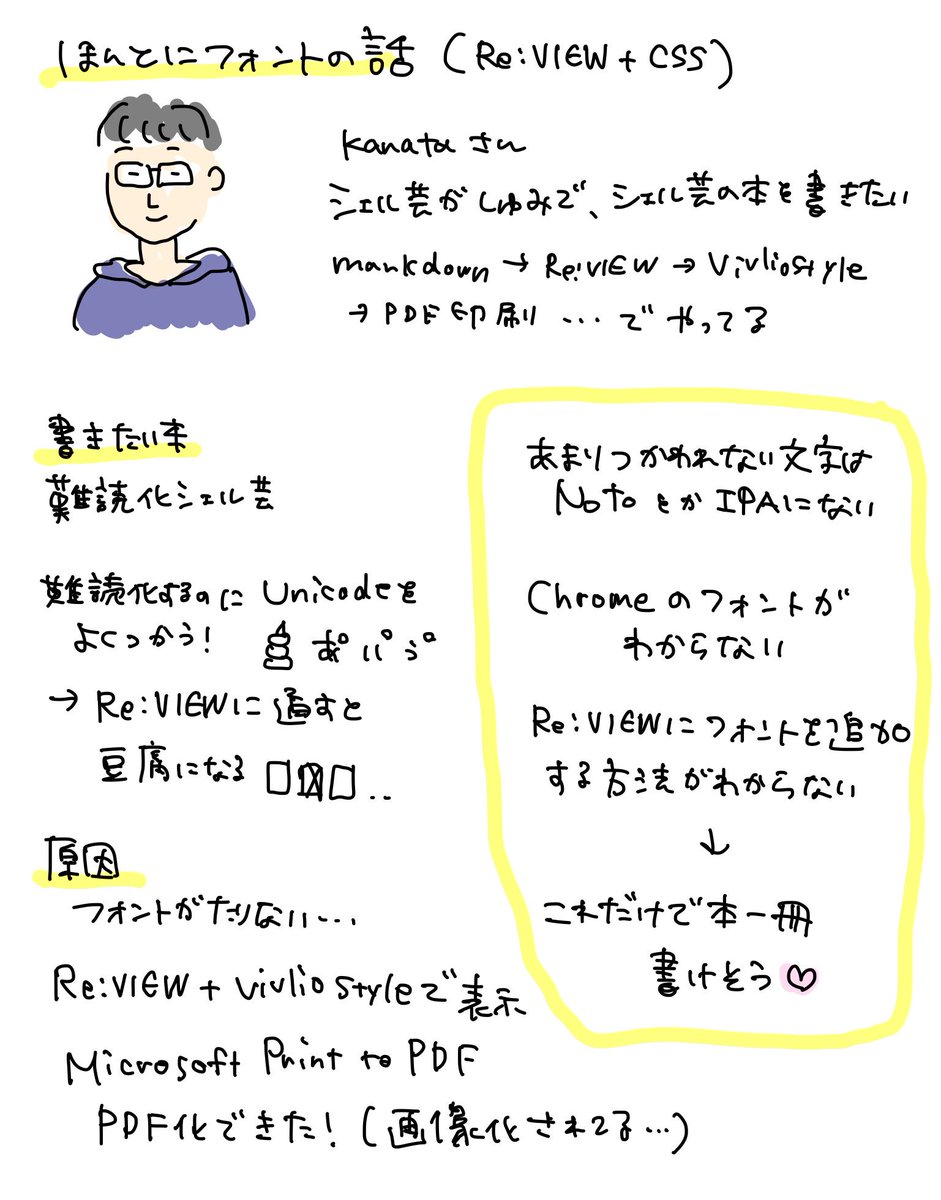 ほんとにフォントの話 (Re:VIEW + CSS)
kanataさん
シェル芸がしゅみで、シェル芸の本を書きたい
markdown → Re:VIEW → Vivliostyle
→ PDF印刷 …でやってる
書きたい本
難読化シェル芸
難読化するのに Unicodeを
よくつかう!
→ Re:VIEWに通すと
豆腐になる □□□..
原因
フォントがたりない…
Re:VIEW + Vivliostyleで表示
Microsoft Print to PDF
PDF化できた! (画像化されてる…)
あまりつかわれない文字は
NotoとかIPAにない
Chromeのフォントが
わからない
Re:VIEWにフォントを追加
する方法がわからない
↓
これだけで本一冊
書けそう♡